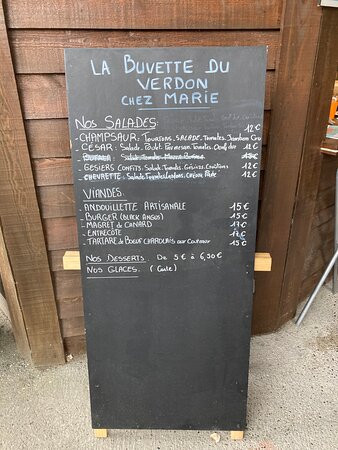 La Buvette du
Verdon
chez Marie
Nos Salades:
12€
- Champsaur: Tourtons, Salade, Tomates, Jambon Cru
- César: Salade, Poulet, Parmesan, Tomates, Oeuf dur 11€
- Burrata: Salade Tomates
- Gesiers Confits: Salade, Tomates, Gésiers, Croûtons 12€
- Chevrette: Salade, Tomates, Lardons, Chèvre 12€
Viandes:
- Andouillette Artisanale 15€
- Burger (Black Angus) 15€
- Magret de Canard 17€
- Entrecôte
- Tartare de Boeuf Charolais au Couteau 15€
Nos Desserts De 5€ à 6,50€
Nos Glaces. (Carte)